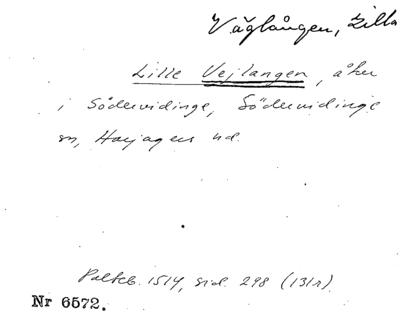 Väglången, Lilla
Lille Vejlangen, åker
i Södervidinge, Södervidinge
sn, Harjagers hd.
Palteb. 1514, sid. 298 (131r).
Nr 6572.